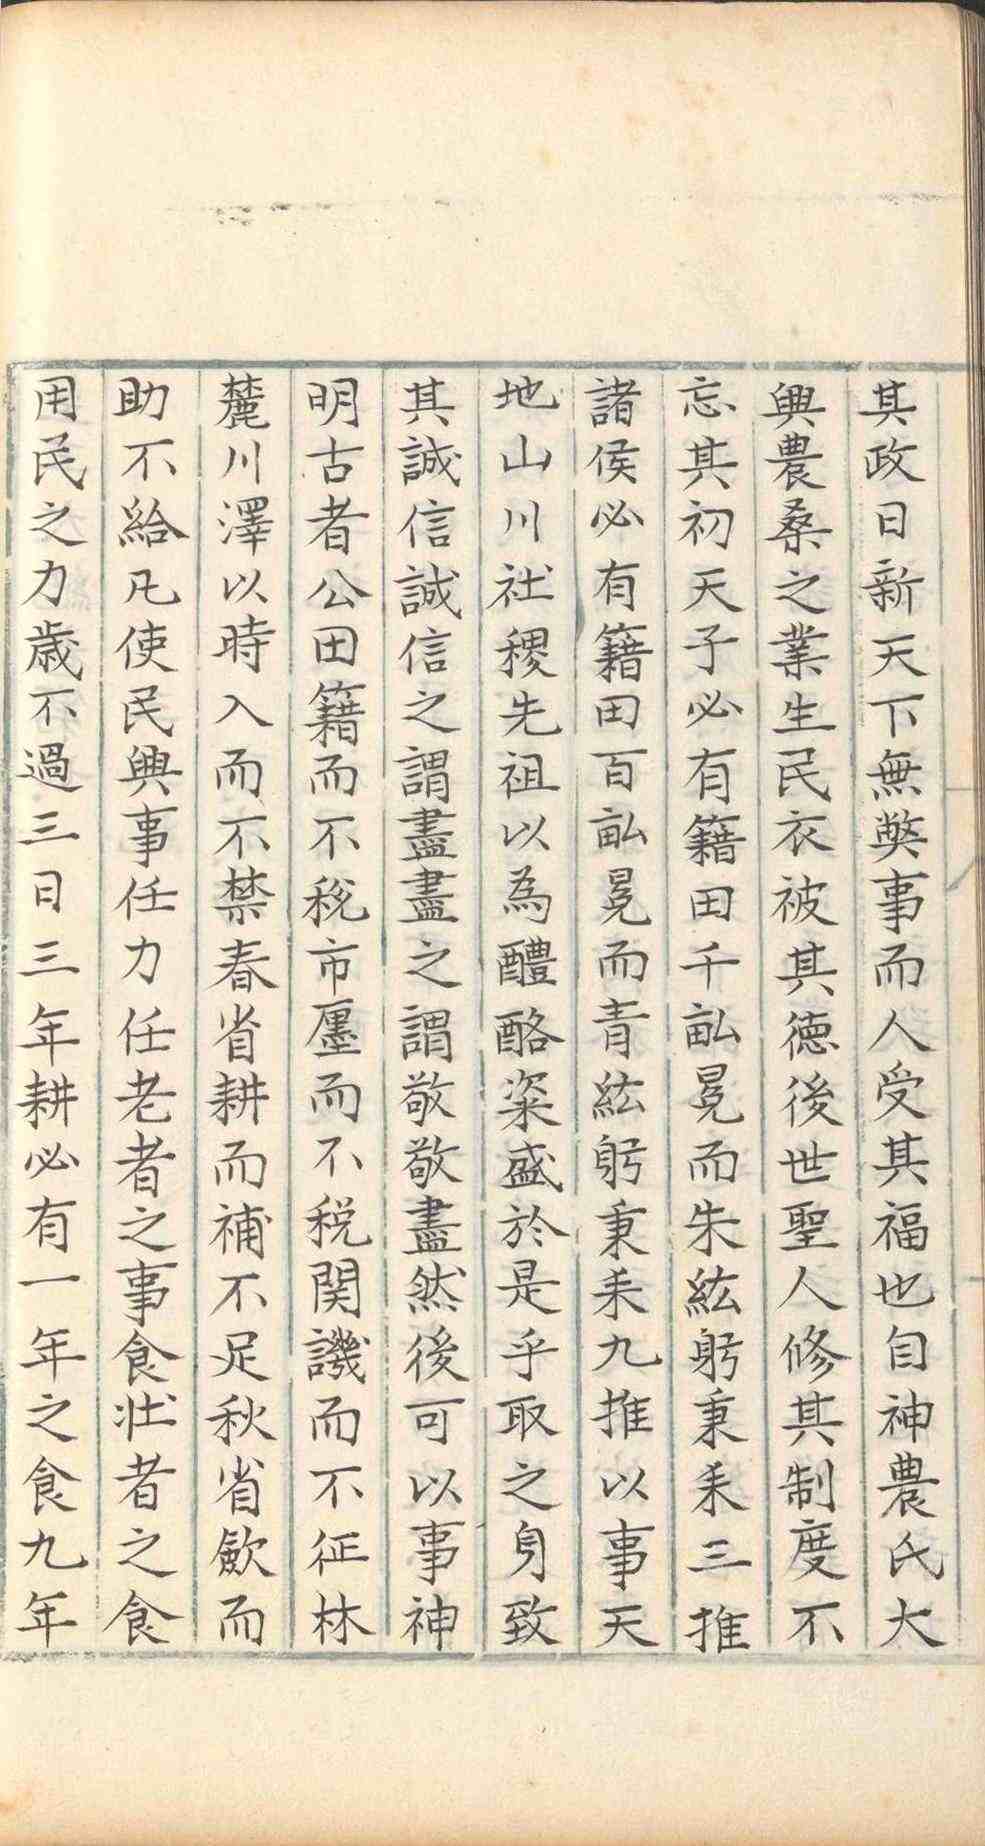 其政日新天下無弊事而人受其福也自神農氏大
興農桑之業生民衣被其德後世聖人修其制度不
忘其初天子必有籍田千畝冕而朱紘躬秉耒三推
諸侯必有籍田百畝冕而青紘躬秉耒九推以事天
地山川社稷先祖以為醴酪粢盛於是乎取之身致
其誠信誠信之謂盡盡之謂敬敬盡然後可以事神
明古者公田籍而不稅市廛而不稅関譏而不征林
麓川澤以時入而不禁春省耕而補不足秋省歛而
助不給凡使民興事任力任老者之事食壯者之食
用民之力歲不過三日三年耕必有一年之食九年